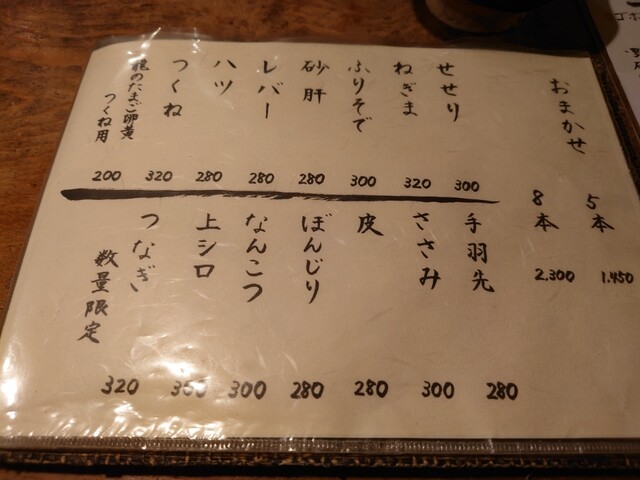 おまかせ
5本 1.450
8本 2.300
せせり 300
ねぎま 320
ふりそで 300
砂肝 280
レバー 280
ハツ 280
つくね 320
のたまご卵黄
つくね用 200
手羽先 280
ささみ 300
皮 280
ぼんじり 280
なんこつ 300
上シロ
つなぎ
数量限定 320